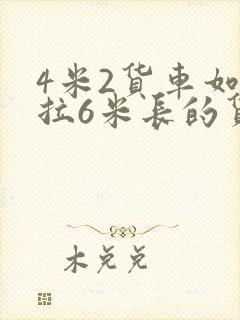 4米2貨車如
拉6米長的
木兑兑